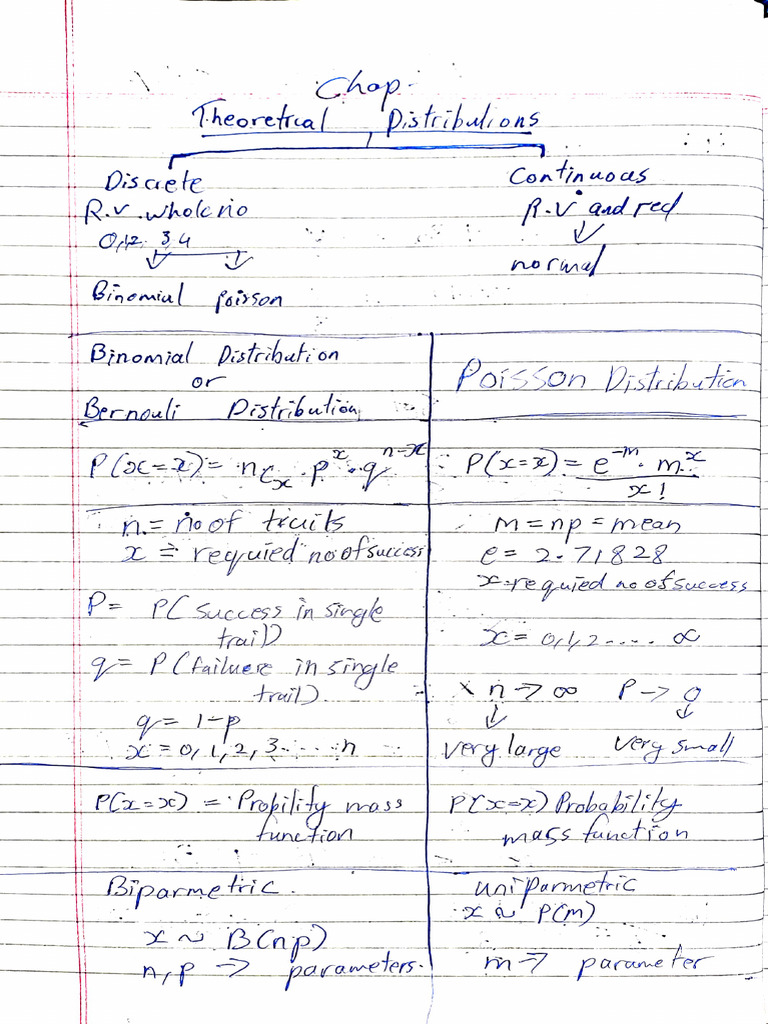 Chap.
Theoretical Distributions
Discrete
R.v. whole no
0,1,2, 3,4
Binomial Poisson
Continuous
R.V and red
normal
Binomial Distribution
or
Bernouli Distribution
P(x=x) = nCx · p^x · q^n-x
n = no of traits
x = requied no of success
P = P( success in single
trail)
q = P (failuere in single
trail)
q = 1-p
x = 0, 1, 2, 3 ..... n
P(x=x) = Propility mass
function
Biparmetric.
x ~ B(np)
n, p → parameters.
Poisson Distribution
P(x=x) = e^-m · m^x / x!
m = np = mean
e = 2.71828
x = requied no of success
x = 0,1,2 ..... ∞
x n → ∞ P → 0
very large very small
P(x=x) Probability
mass function
uniparmetric
x ~ P(m)
m → parameter